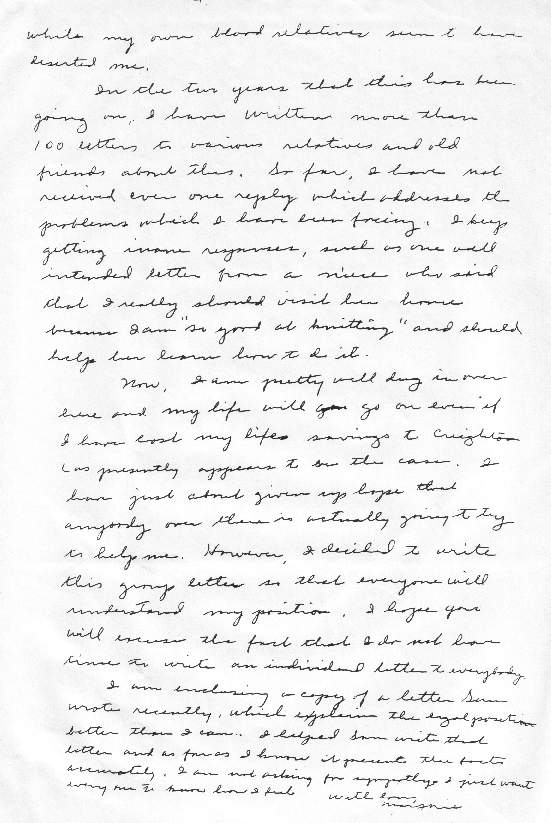 while my own blood relatives seem to have
deserted me.
In the two years that this has been
going on, I have written more than
100 letters to various relatives and old
friends about this. So far, I have not
received even one reply which addresses the
problems which I have been facing. I keep
getting inane responses, such as one well
intended letter from a niece who said
that I really should visit her home
because I am "so good at knitting" and should
help her learn how to do it.
Now, I am pretty well dug in over
here and my life will go on even if
I have lost my life savings to Creighton
(as presently appears to be the case. I
have just about given up hope that
anybody over there is actually going to try
to help me. However, I decided to write
this group letter so that everyone will
understand my position. I hope you
will excuse the fact that I do not have
time to write an individual letter to everybody
I am enclosing a copy of a letter Sam
wrote recently, which explains the legal position
better than I can. I helped Sam write that
letter and as far as I know it presents the facts
accurately. I am not asking for sympathy I just want
every one to know how I feel with love,
Marjorie